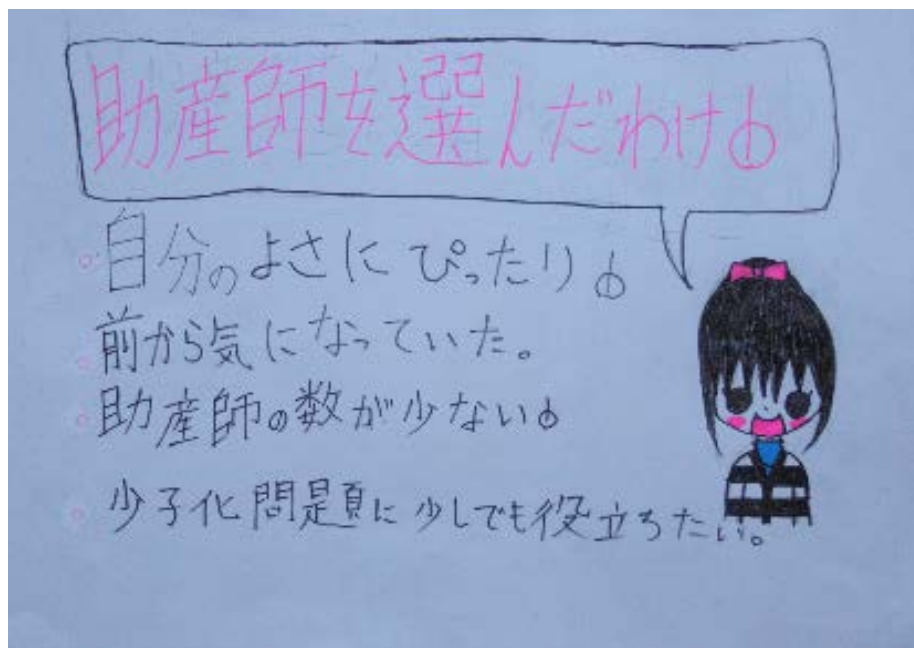 助産師を選んだわけ♪
○自分のよさにぴったり♪
○前から気になっていた。
○助産師の数が少ない♪
○少子化問題に少しでも役立ちたい。